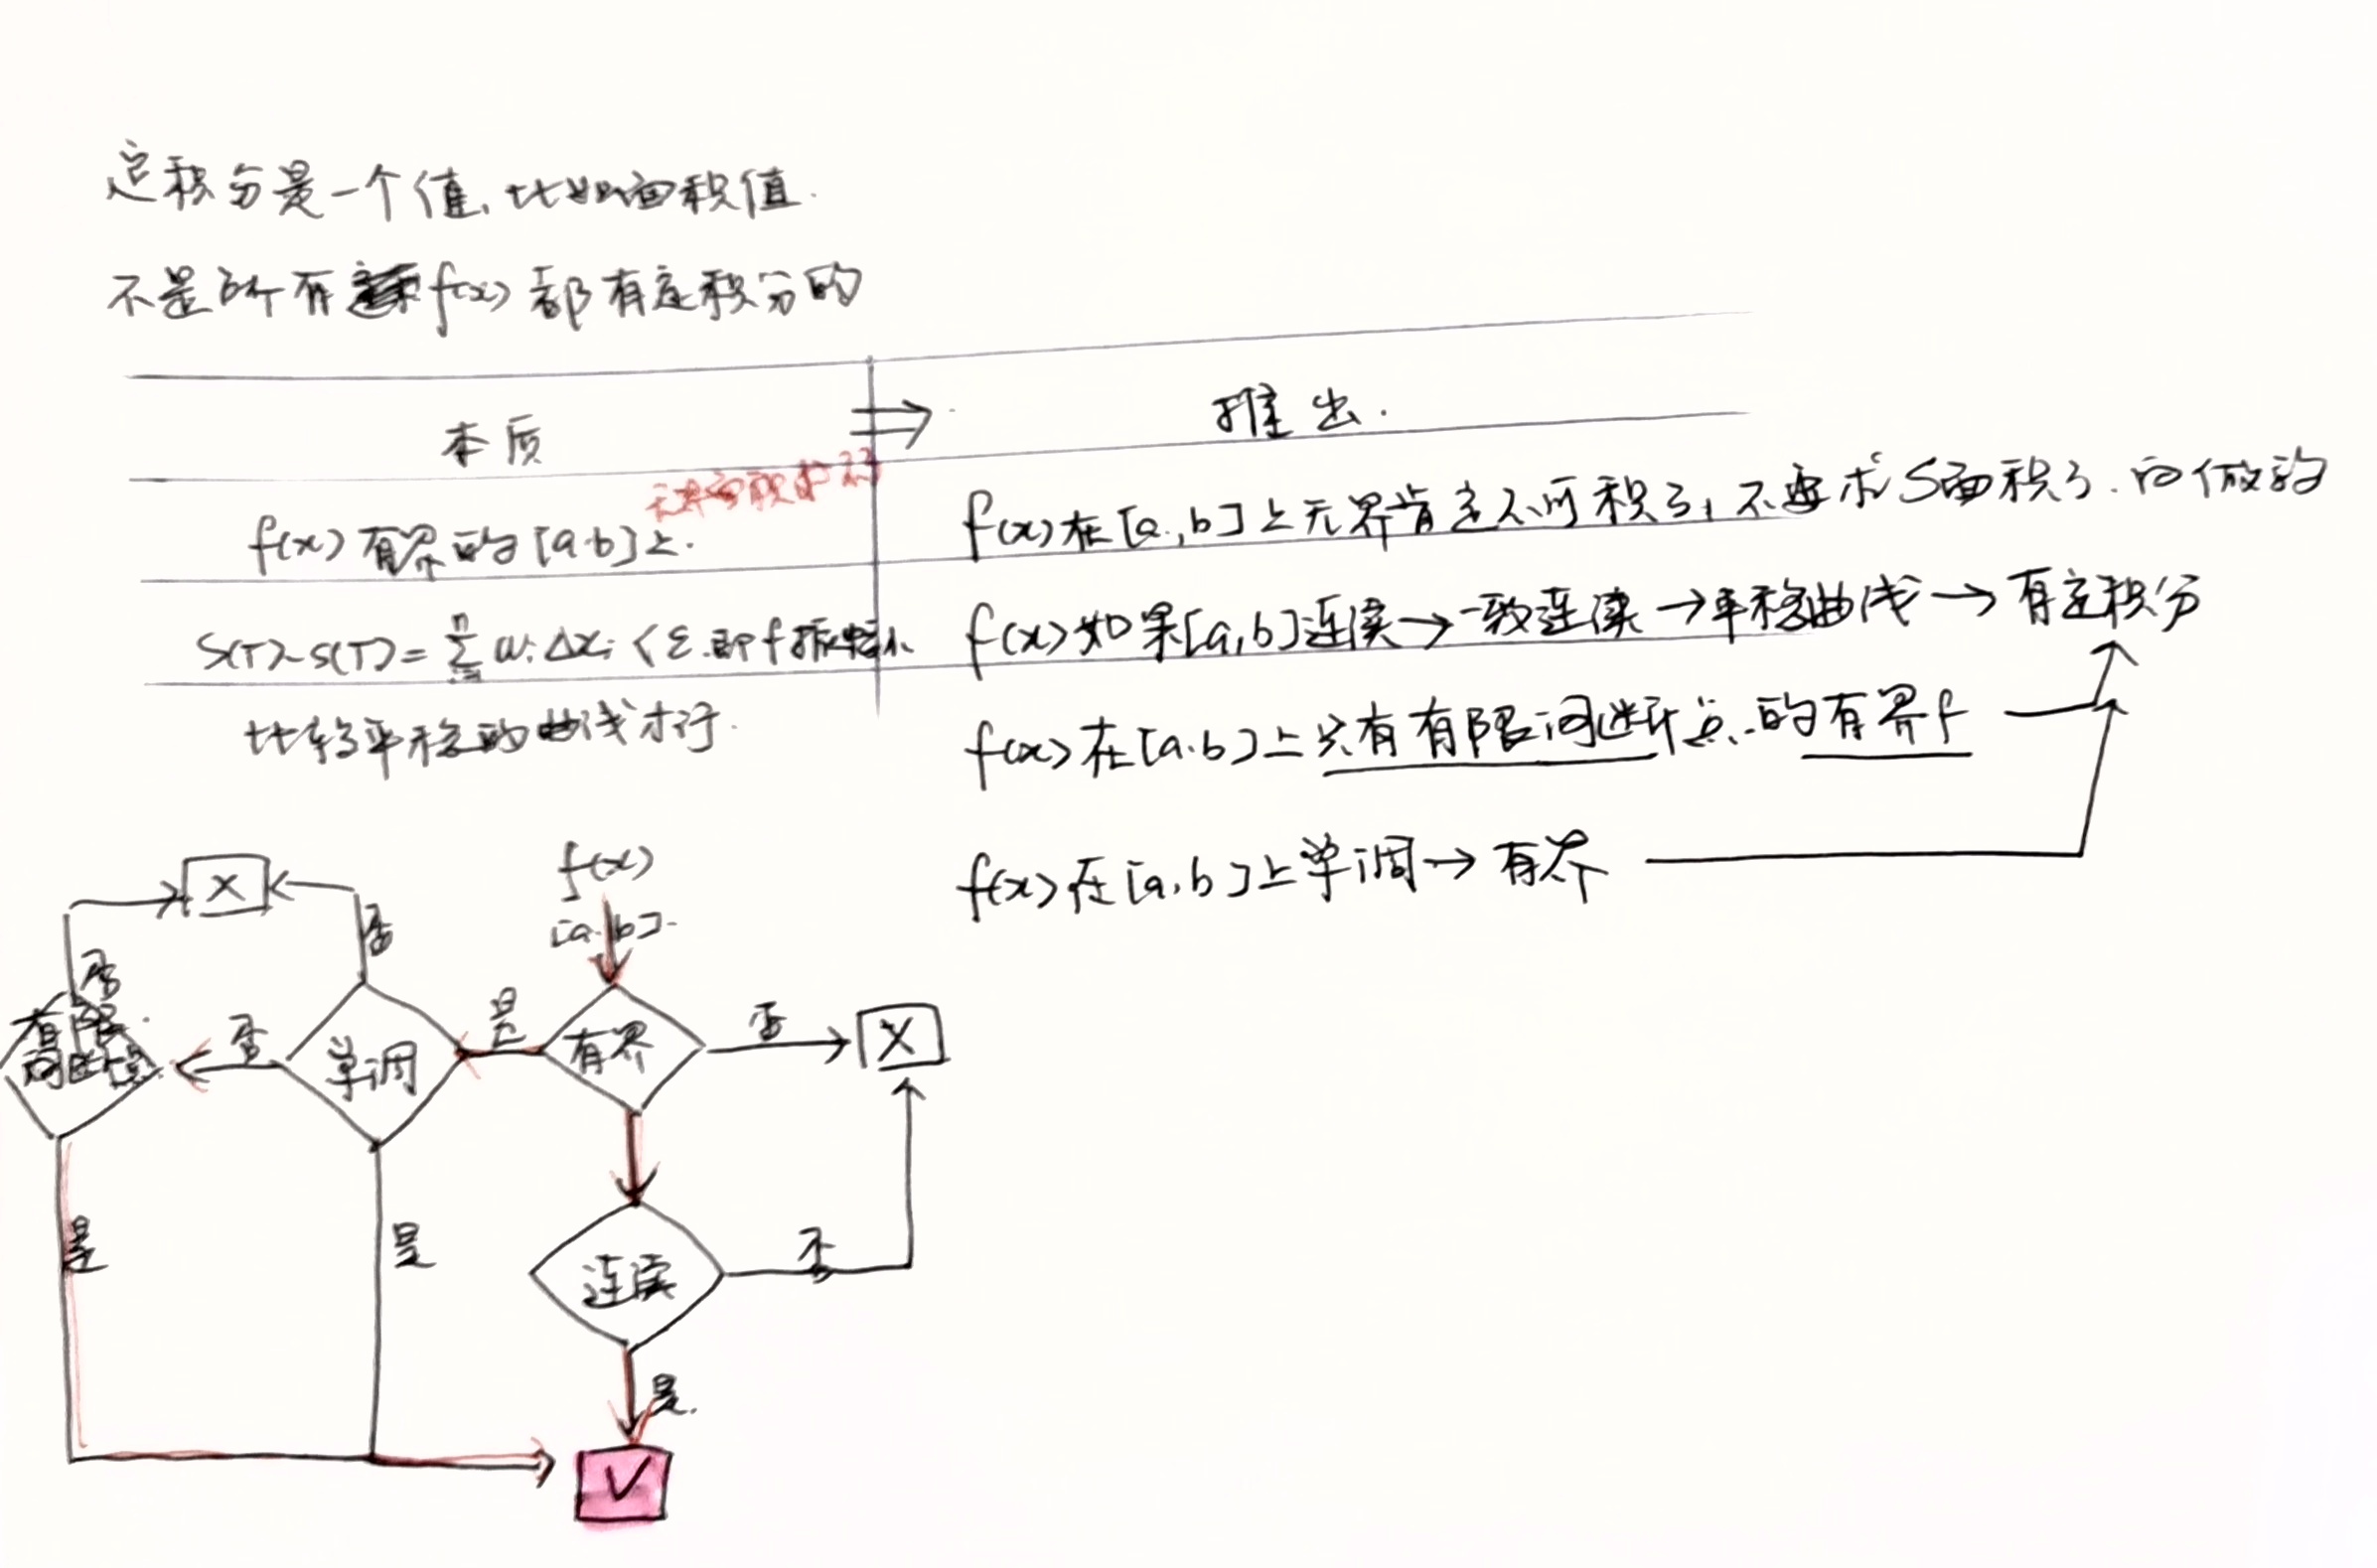 定积分是一个值,比如面积值.
不是所有f(x)都有定积分的
本质 ⇒ 推出.
f(x)有界的[a.b]上.
f(x)在[a.,b]上无界肯定不可积了,不要求S面积了.
S(T)-s(T)=∑ωiΔxi<ε.即f振幅小
f(x)如果[a,b]连续→一致连续→平稳曲线→有定积分
比较平稳的曲线才行.
f(x)在[a.b]上只有有限间断点.的有界f
f(x)在[a,b]上单调→有界
f(x)
[a.b].
X
否
否
有限.
间断点
否
单调
是
有界
否
X
是
是
连续
否
是.
✓